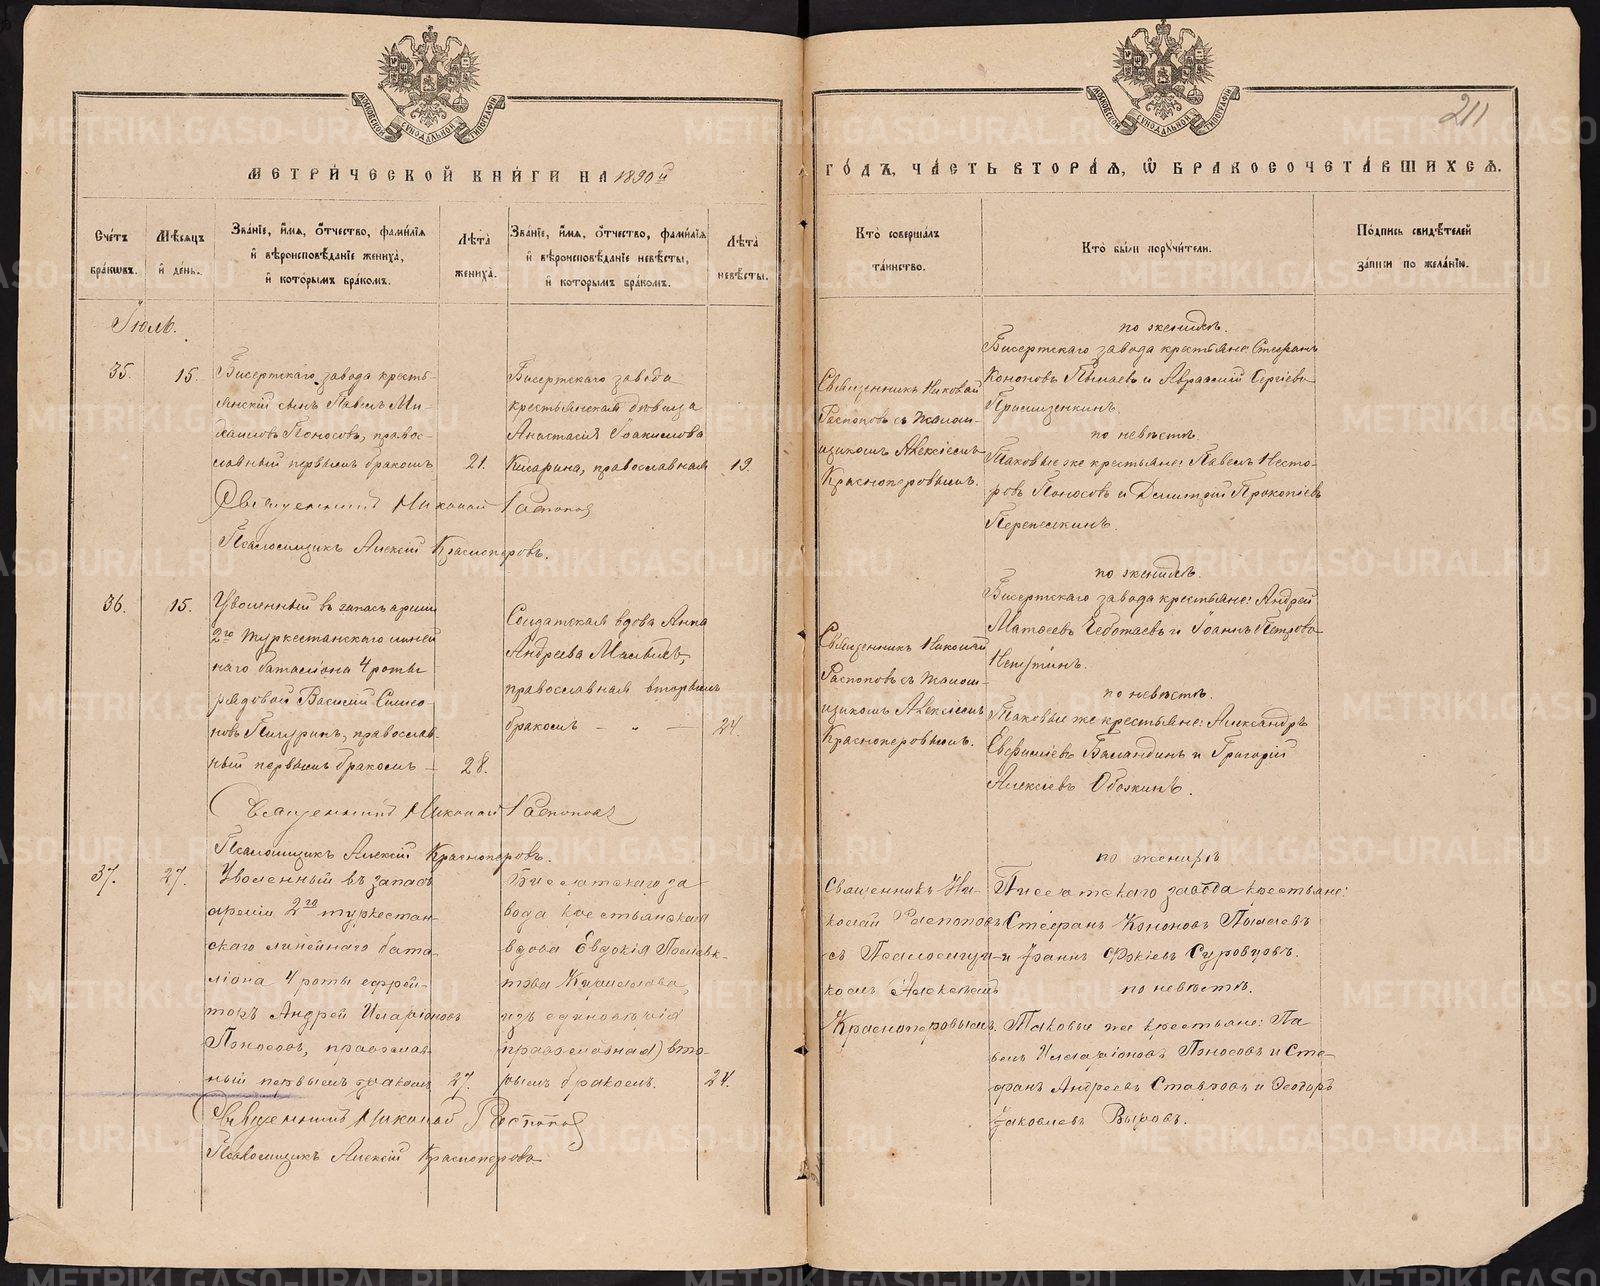 МОСКОВСКОЙ СѴНОДАЛЬНОЙ ТИПОГРАФІИ
МЕТРИ́ЧЕСКОЙ КНИ́ГИ НА 1890й
Сче́тъ бра́кѡвъ.
Мѣ́сѧцъ и҆ де́нь.
Зва́нїе, и҆́мѧ, ѻ҆́тчество, фами́лїѧ и҆ вѣроисповѣ́данїе жениха̀, и҆ кото́рымъ бра́комъ.
Лѣ́та жениха̀.
Зва́нїе, и҆́мѧ, ѻ҆́тчество, фами́лїѧ и҆ вѣроисповѣ́данїе невѣ́сты, и҆ кото́рымъ бра́комъ.
Лѣ́та невѣ́сты.
Іюль.
35
15.
Бисертскаго завода кресть-
янскій сынъ Павелъ Ми-
хаиловъ Поносовъ, правос-
лавный первымъ бракомъ
21.
Бисертскаго завода
крестьянская дѣвица
Анастасія Іоакимова
Кисарина, православная
19.
Священникъ Николай Распопов
Псаломщикъ Алексій Красноперовъ.
36.
15.
Уволенный въ запасъ арміи
2го Туркестанскаго линей
наго баталіона 4 роты
рядовой Василій Симео-
новъ Пичуринъ, православ-
ный первымъ бракомъ —
28.
Солдатская вдова Анна
Андреева
православная вторымъ
бракомъ — „ —
24.
Священникъ Николай Распопов
Псаломщикъ Алексій Красноперовъ.
37.
27.
Уволенный въ запасъ
арміи 2го туркестан-
скаго линейнаго бата-
ліона 4 роты ефрей-
торъ Андрей Иларіоновъ
Поносовъ, православ-
ный первымъ бракомъ
27.
Бисертскаго за
вода крестьянская
вдова Евдокія
Кириллова,
изъ единовѣрія
православная) вто-
рымъ бракомъ.
24.
Священникъ Николай Распопов
Псаломщикъ Алексій Красноперовъ
МОСКОВСКОЙ СѴНОДАЛЬНОЙ ТИПОГРАФІИ
211
ГО́ДЪ, ЧА́СТЬ ВТОРА́Ѧ, Ѽ БРАКОСОЧЕТА́ВШИХСѦ.
Кто̀ соверша́лъ та́инство.
Кто̀ бы́ли порꙋчи́тели.
По́дпись свидѣ́телей за́писи по жела́нїю.
Священникъ Николай
Распоповъ съ Псалом-
щикомъ Алексіемъ
Красноперовымъ.
по женихѣ.
Бисертскаго завода крестьяне: Стефанъ
Кононовъ Пылаевъ и Авраамій Сергіевъ
по невѣстѣ.
Таковые же крестьяне: Павелъ Несто-
ровъ Поносовъ и Димитрій Прокопіевъ
Священникъ Николай
Распоповъ съ Псалом-
щикомъ Алексіемъ
Красноперовымъ.
по женихѣ.
Бисертскаго завода крестьяне: Андрей
Матѳеевъ Чеботаевъ и Іоаннъ Петровъ
по невѣстѣ.
Таковые же крестьяне: Александръ
Евфиміевъ Баландинъ и Григорій
Алексіевъ Обожинъ.
Священникъ Ни-
колай Распоповъ
съ Псаломщи-
комъ Алексіемъ
Красноперовымъ.
по женихѣ
Бисертскаго завода крестьяне:
Стефанъ Кононовъ Пылаевъ
и Іоаннъ Фокіевъ Суровцовъ.
по невѣстѣ.
Таковые же крестьяне: Па
велъ Илларіоновъ Поносовъ и Сте-
фанъ Андреевъ Ставровъ и Ѳеодоръ
Іаковлевъ Выровъ.
METRIKI.GASO-URAL.RU